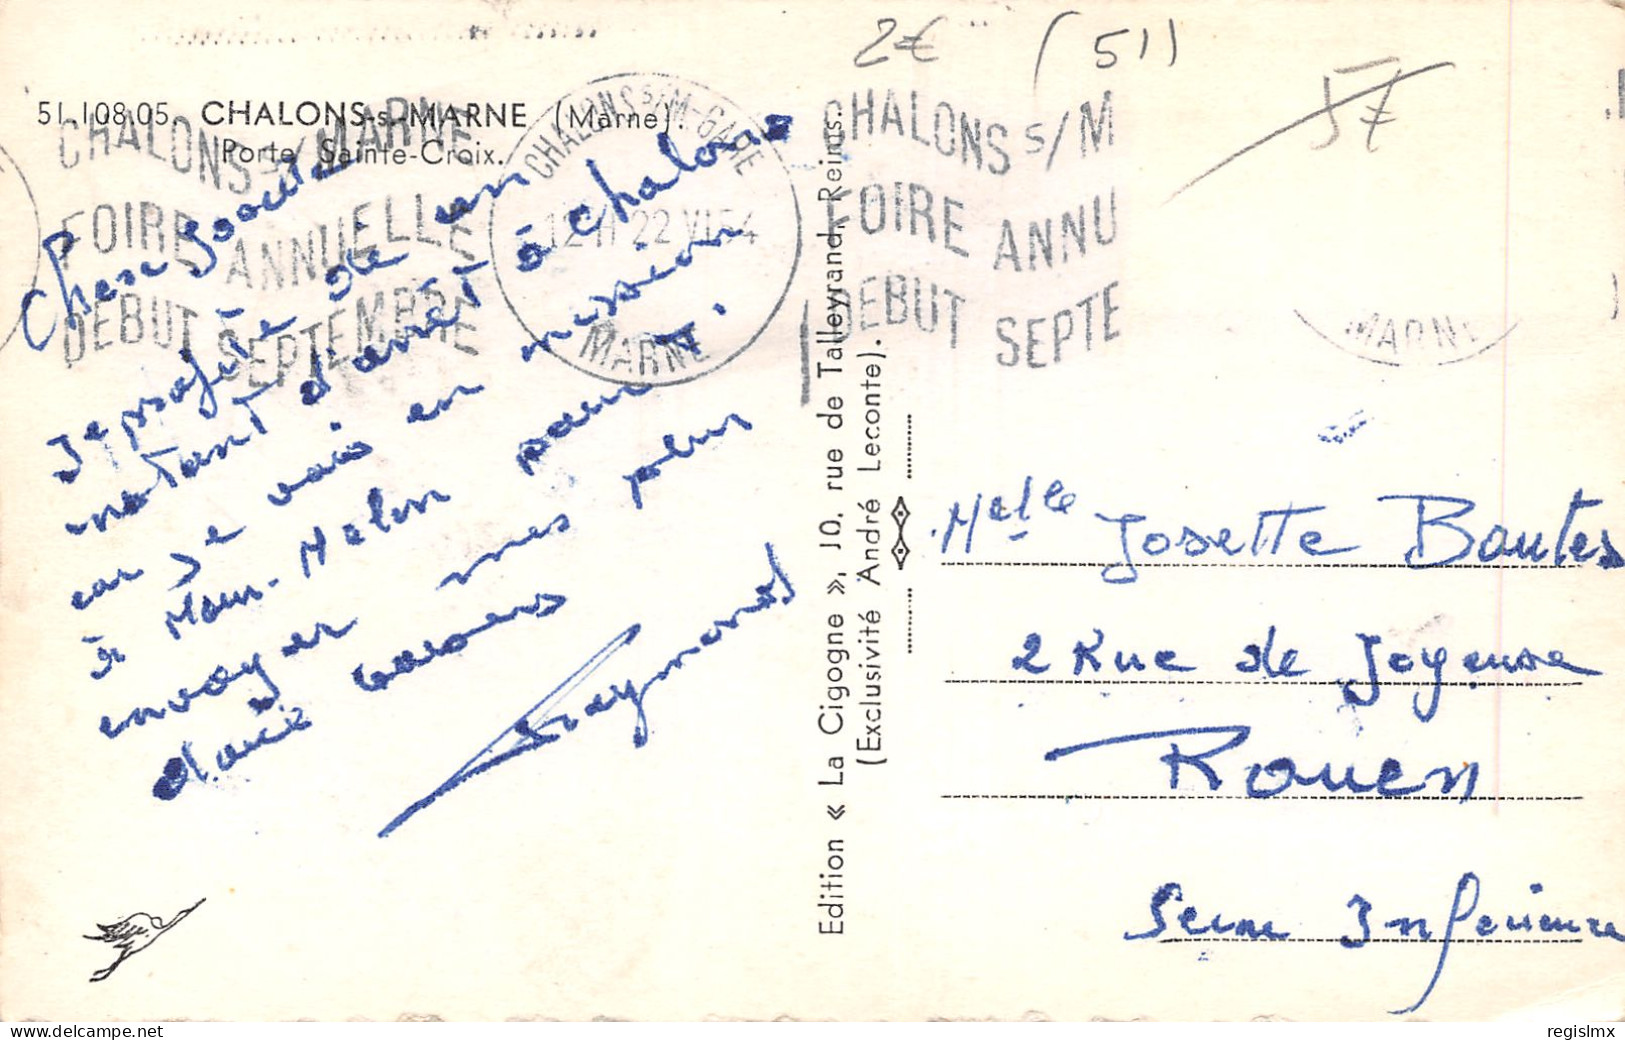 2€ (51)
57
51.108.05. CHALONS-s.-MARNE (Marne).
Porte Sainte-Croix.
CHALONS s/MARNE
FOIRE ANNUELLE
DEBUT SEPTEMBRE
CHALONS S/M-GARE
22 VI 54
MARNE
CHALONS s/M
FOIRE ANNU
DEBUT SEPTE
MARNE
Chere Josette
Je profite de un
instant d'arrêt à chalons
car je vais en mission
à Mourmelon pour t'
envoyer mes plus
doux baisers
Raymond
Edition « La Cigogne », 10, rue de Talleyrand, Reims.
(Exclusivité André Leconte).
Melle Josette Boutes
2 Rue de Joyeuse
Rouen
Seine Inferieure
regislmx